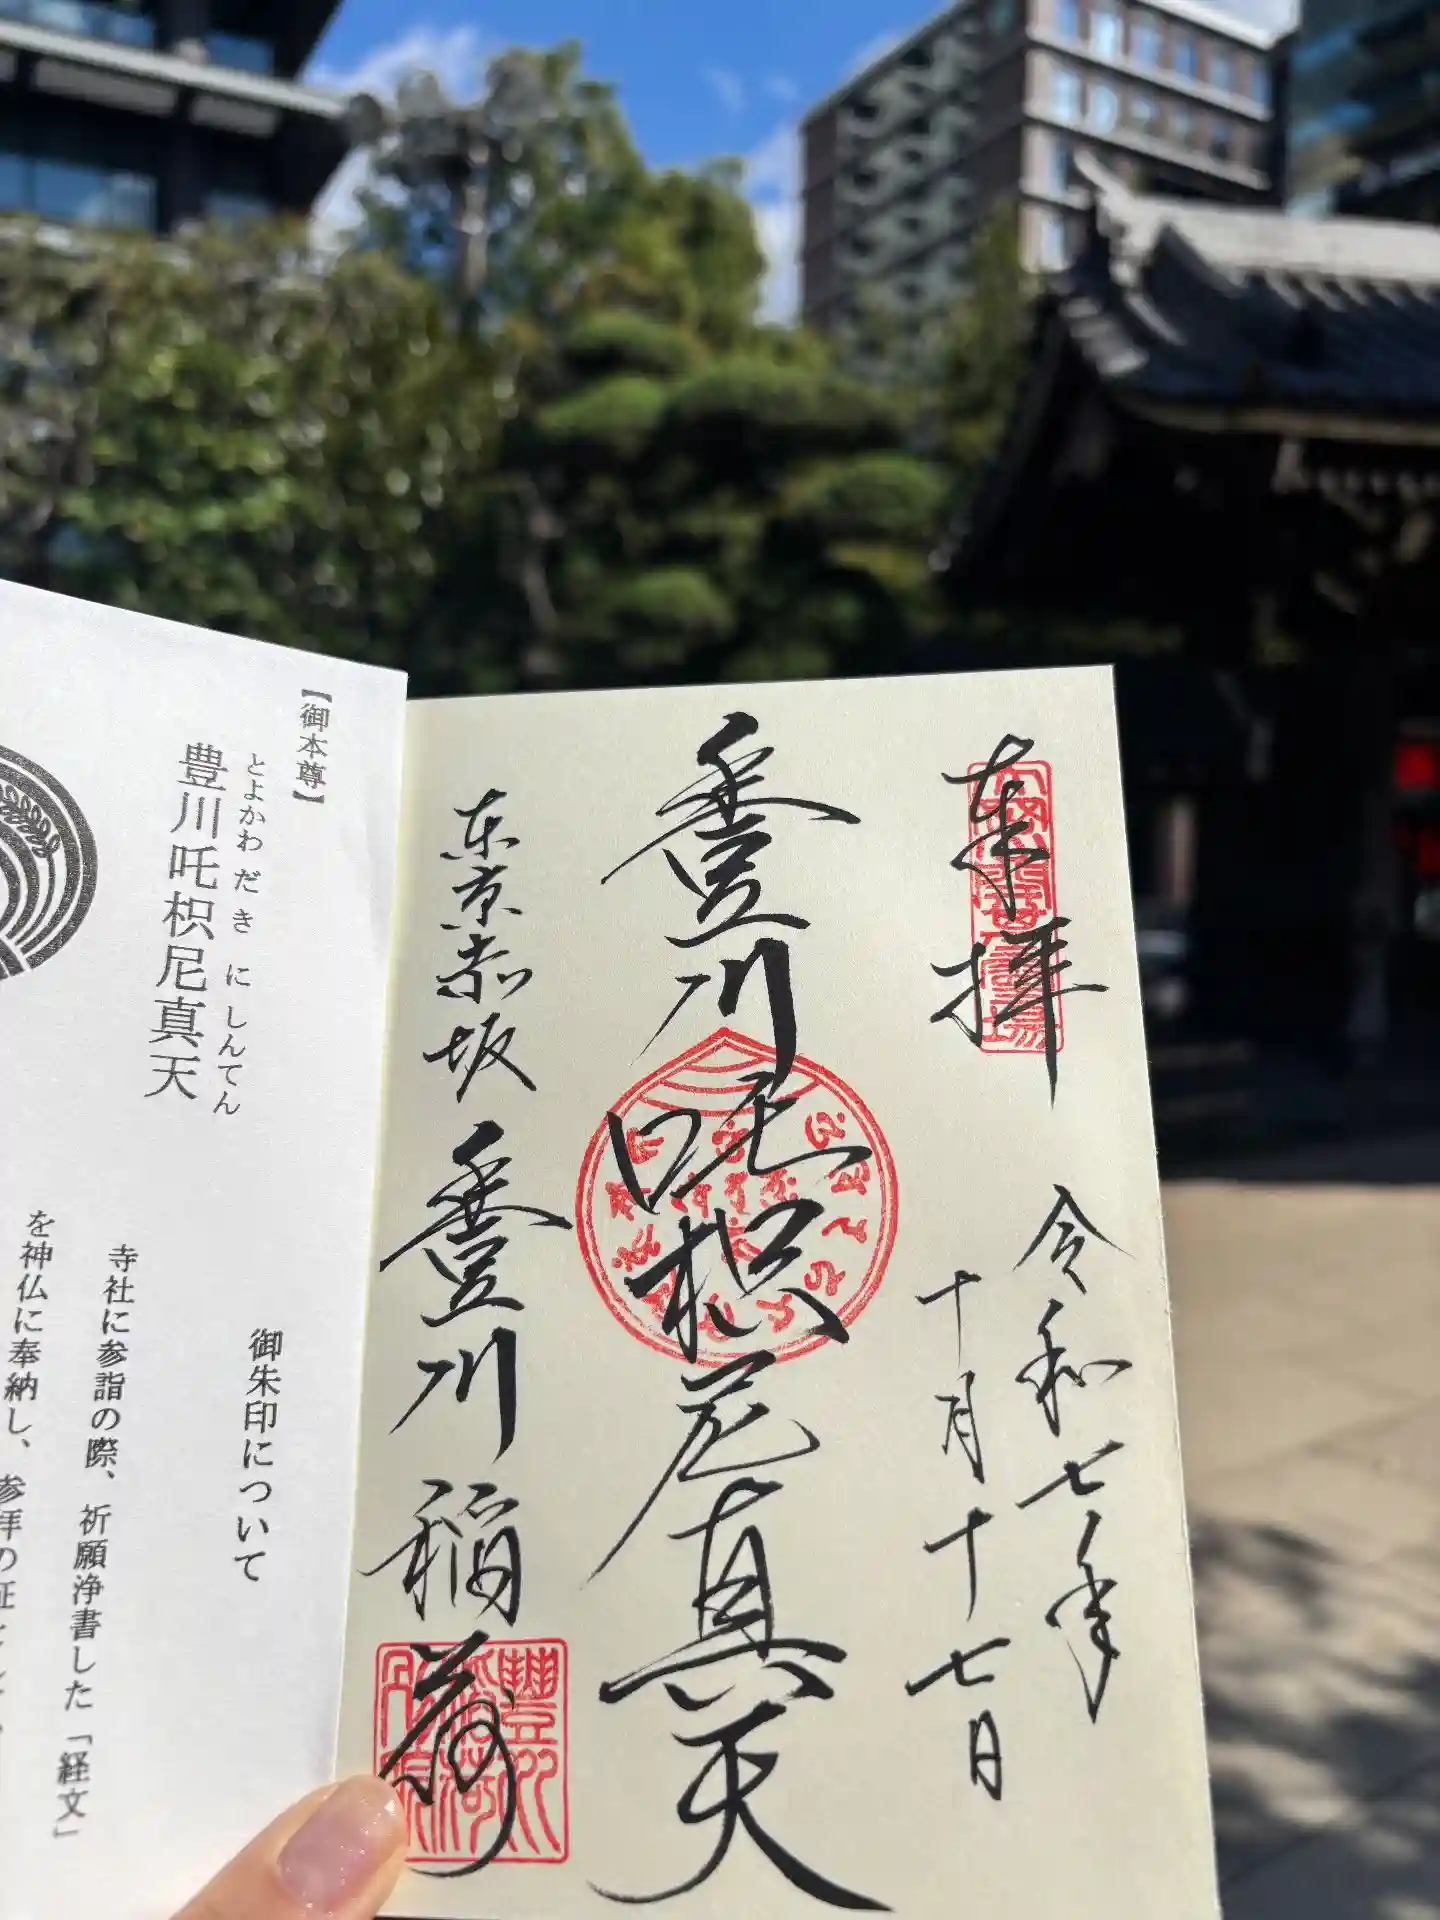 奉拝
令和七年
十月十七日
豊川吒枳尼真天
東京赤坂
豊川稲荷
【御本尊】
とよかわだきにしんてん
豊川吒枳尼真天
御朱印について
寺社に参詣の際、祈願浄書した「経文」
を神仏に奉納し、参拝の証として